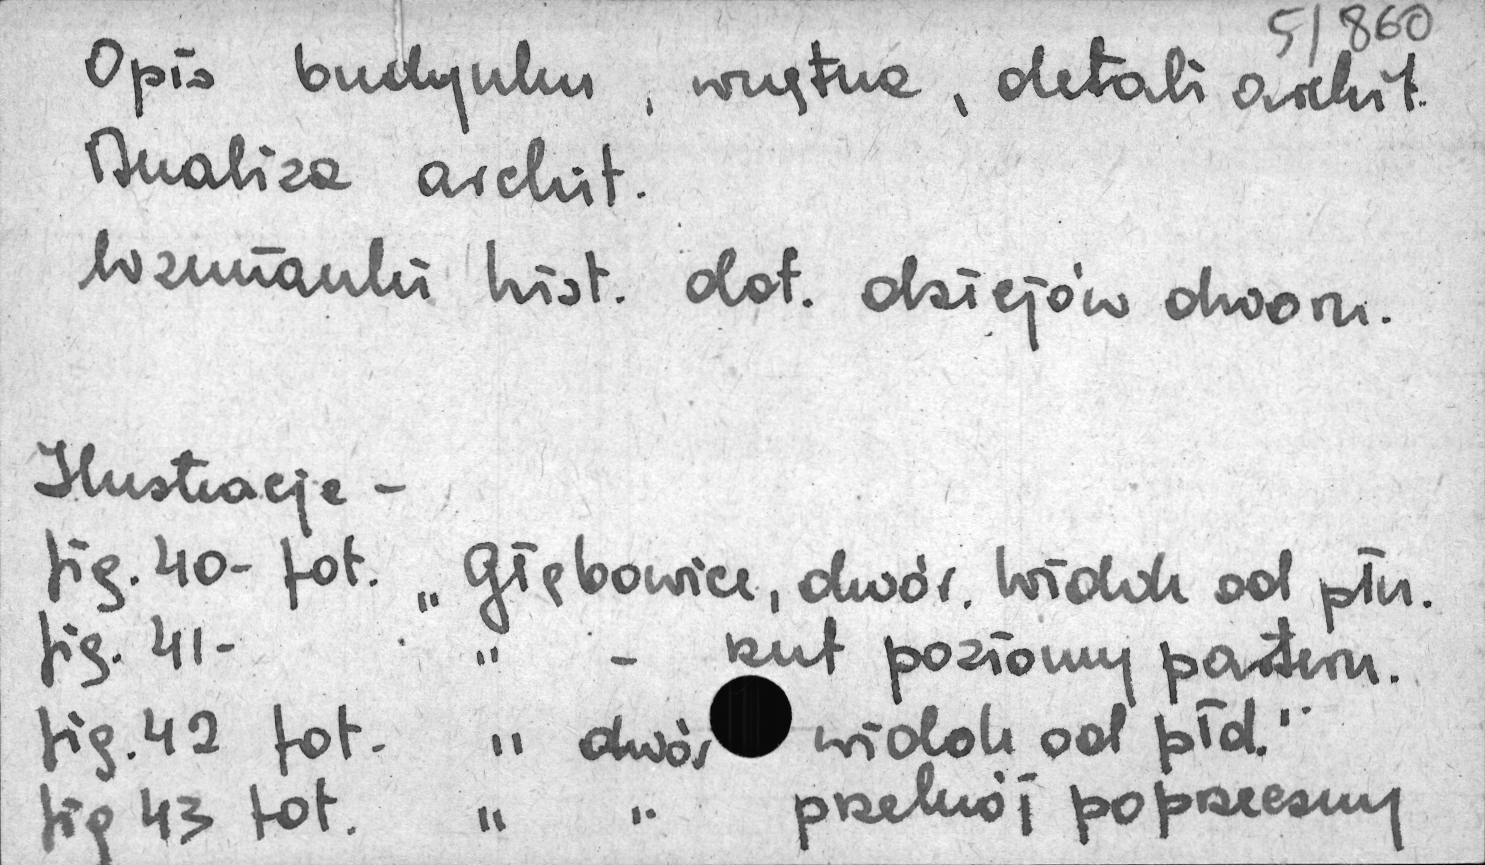 5/860
Opis budynku, wnętrza, detali archit.
Analiza archit.
Wzmianki hist. dot. dziejów dworu.
Ilustracje -
fig. 40 - fot. „Głębowice, dwór. Widok od płn.
fig. 41 - " - rzut poziomy parteru.
fig. 42 fot. - " dwór widok od płd."
fig 43 fot. " " przekrój poprzeczny